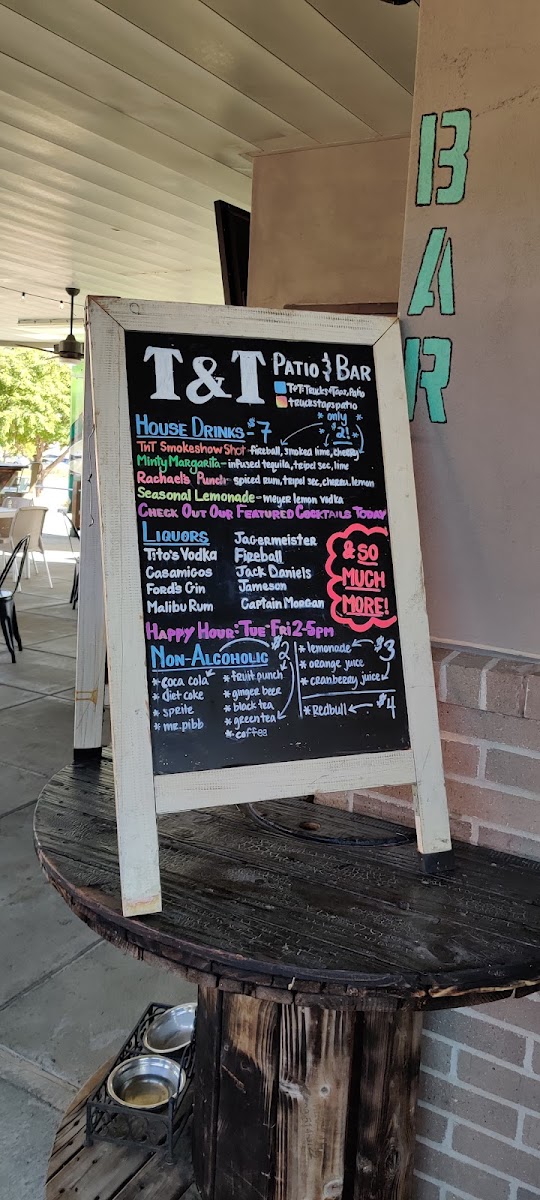 BAR
T&T PATIO & BAR
T&T.Trucks&Taps.Patio
truckstapspatio
HOUSE DRINKS - $7
* only *
* $2! *
TnT Smokeshow Shot - fireball, smoked lime, cherry
Minty Margarita - infused tequila, tripel sec, lime
Rachael's Punch - spiced rum, tripel sec, cherry, lemon
Seasonal Lemonade - meyer lemon vodka
CHECK OUT OUR FEATURED COCKTAILS TODAY
LIQUORS
Tito's Vodka
Casamigos
Ford's Gin
Malibu Rum
Jagermeister
Fireball
Jack Daniels
Jameson
Captain Morgan
& SO
MUCH
MORE!
HAPPY HOUR: TUE-FRI 2-5PM
NON-ALCOHOLIC $2
* coca cola
* diet coke
* sprite
* mr. pibb
* fruit punch
* ginger beer
* black tea
* green tea
* coffee
* lemonade $3
* orange juice
* cranberry juice
* Redbull $4